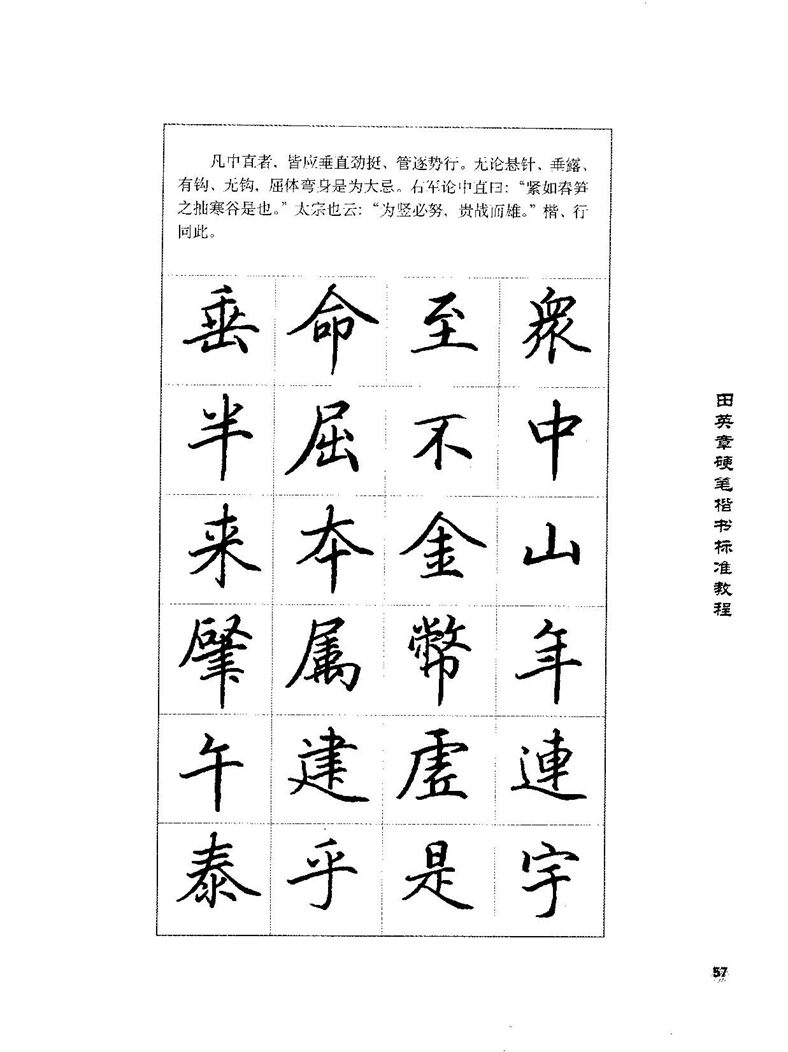 凡中直者，皆应垂直劲挺、管逐势行。无论悬针、垂露、
有钩、无钩，屈体弯身是为大忌。右军论中直曰：“紧如春笋
之抽寒谷是也。”太宗也云：“为竖必努，贵战而雄。”楷、行
同此。
垂命至衆
半屈不中
来本金山
肇属幣年
午建虚連
泰乎是宇
田英章硬笔楷书标准教程
57